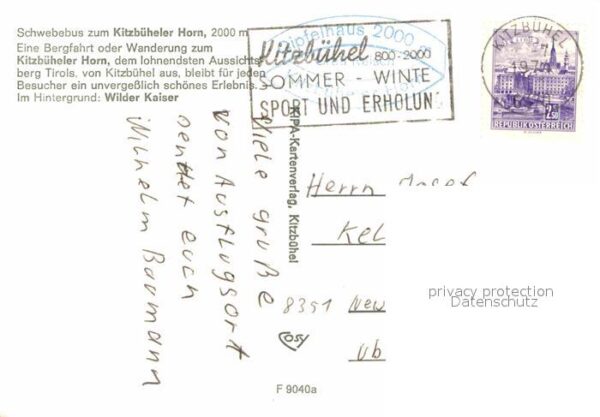 Schwebebus zum Kitzbüheler Horn, 2000 m
Eine Bergfahrt oder Wanderung zum
Kitzbüheler Horn, dem lohnendsten Aussichts
berg Tirols, von Kitzbühel aus, bleibt für jeden
Besucher ein unvergeßlich schönes Erlebnis.
Im Hintergrund: Wilder Kaiser
Gipfelhaus 2000 m
Kitzbühel 800-2000
SOMMER - WINTE
SPORT UND ERHOLUN
KITZBÜHEL
2.50
REPUBLIK ÖSTERREICH
Viele grüße
von Ausflugsort
sendet euch
Wilhelm Baumann
KIPA-Kartenverlag, Kitzbühel
Herrn
Kel
8351 New
ub
privacy protection
Datenschutz
Cosy
F 9040a